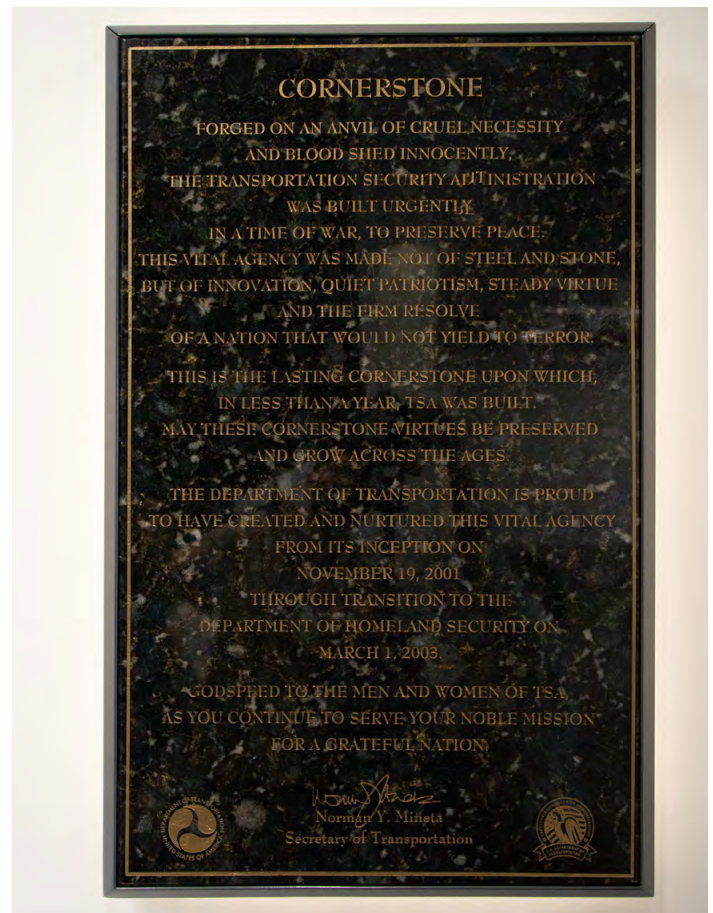 CORNERSTONE
FORGED ON AN ANVIL OF CRUEL NECESSITY
AND BLOOD SHED INNOCENTLY,
THE TRANSPORTATION SECURITY ADMINISTRATION
WAS BUILT URGENTLY
IN A TIME OF WAR, TO PRESERVE PEACE.
THIS VITAL AGENCY WAS MADE NOT OF STEEL AND STONE,
BUT OF INNOVATION, QUIET PATRIOTISM, STEADY VIRTUE
AND THE FIRM RESOLVE
OF A NATION THAT WOULD NOT YIELD TO TERROR.
THIS IS THE LASTING CORNERSTONE UPON WHICH,
IN LESS THAN A YEAR, TSA WAS BUILT.
MAY THESE CORNERSTONE VIRTUES BE PRESERVED
AND GROW ACROSS THE AGES.
THE DEPARTMENT OF TRANSPORTATION IS PROUD
TO HAVE CREATED AND NURTURED THIS VITAL AGENCY
FROM ITS INCEPTION ON
NOVEMBER 19, 2001
THROUGH TRANSITION TO THE
DEPARTMENT OF HOMELAND SECURITY ON
MARCH 1, 2003.
GODSPEED TO THE MEN AND WOMEN OF TSA,
AS YOU CONTINUE TO SERVE YOUR NOBLE MISSION
FOR A GRATEFUL NATION.
Norman Y. Mineta
Secretary of Transportation
DEPARTMENT OF TRANSPORTATION
UNITED STATES OF AMERICA